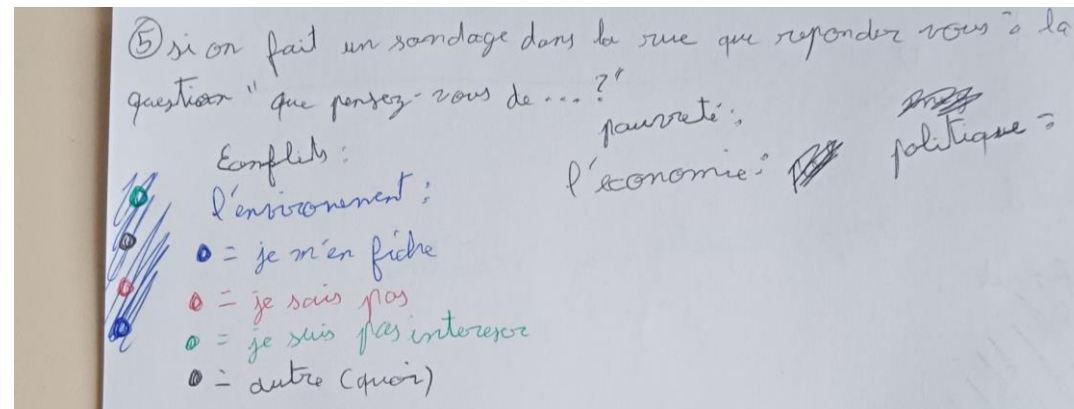 ⑤ si on fait un sondage dans la rue que reponder vous à la
question " que pensez-vous de ... ?"
Conflits : pauvreté :
l'environement : l'economie : politique :
= je m'en fiche
= je sais pas
= je suis pas interesor
= autre (quoi)